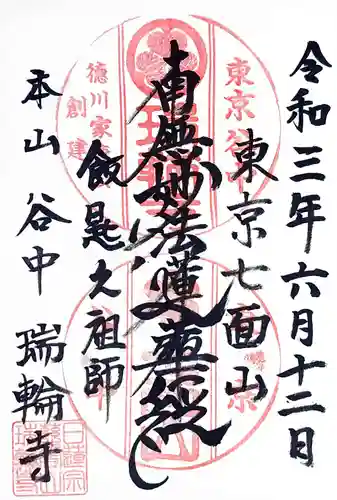 令和三年六月十二日
東京七面山
南無妙法蓮華経
飯匙之祖師
本山 谷中 瑞輪寺
東京谷中
徳川家
創建